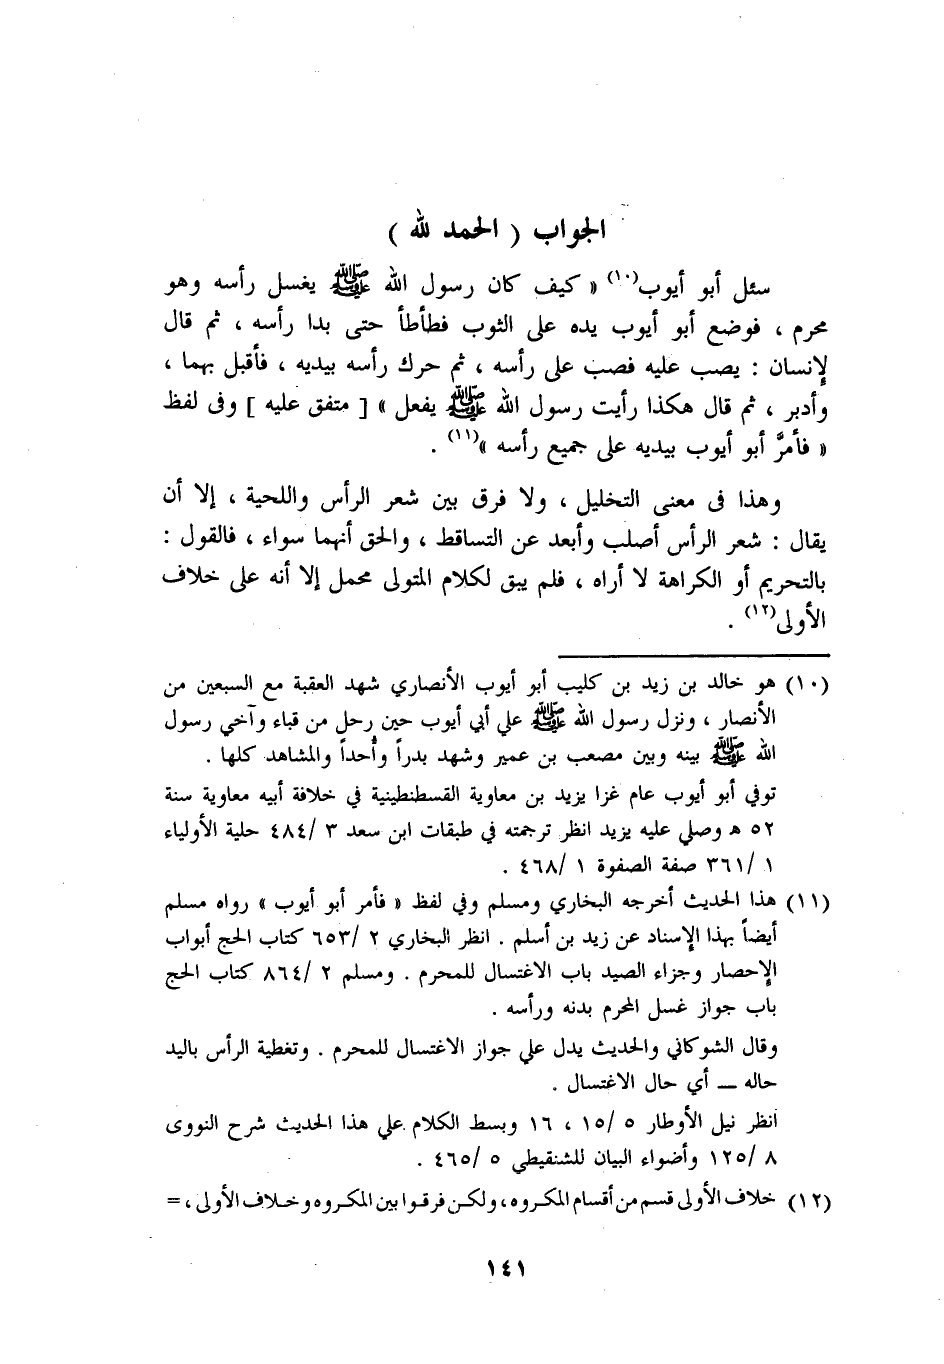 الجواب ( الحمد لله )
سئل أبو أيوب(١٠) « كيف كان رسول الله ﷺ يغسل رأسه وهو
محرم ، فوضع أبو أيوب يده على الثوب فطأطأ حتى بدا رأسه ، ثم قال
لإنسان : يصب عليه فصب على رأسه ، ثم حرك رأسه بيديه ، فأقبل بهما ،
وأدبر ، ثم قال هكذا رأيت رسول الله ﷺ يفعل » [ متفق عليه ] وفى لفظ
« فأمرَّ أبو أيوب بيديه على جميع رأسه »(١١) .
وهذا فى معنى التخليل ، ولا فرق بين شعر الرأس واللحية ، إلا أن
يقال : شعر الرأس أصلب وأبعد عن التساقط ، والحق أنهما سواء ، فالقول :
بالتحريم أو الكراهة لا أراه ، فلم يبق لكلام المتولى محمل إلا أنه على خلاف
الأولى(١٢) .
(١٠) هو خالد بن زيد بن كليب أبو أيوب الأنصاري شهد العقبة مع السبعين من
الأنصار ، ونزل رسول الله ﷺ علي أبي أيوب حين رحل من قباء وآخي رسول
الله ﷺ بينه وبين مصعب بن عمير وشهد بدراً وأحداً والمشاهد كلها .
توفي أبو أيوب عام غزا يزيد بن معاوية القسطنطينية في خلافة أبيه معاوية سنة
٥٢ هـ وصلي عليه يزيد انظر ترجمته في طبقات ابن سعد ٣ /٤٨٤ حلية الأولياء
١ /٣٦١ صفة الصفوة ١ /٤٦٨ .
(١١) هذا الحديث أخرجه البخاري ومسلم وفي لفظ « فأمر أبو أيوب » رواه مسلم
أيضاً بهذا الإسناد عن زيد بن أسلم . انظر البخاري ٢ /٦٥٣ كتاب الحج أبواب
الإحصار وجزاء الصيد باب الاغتسال للمحرم . ومسلم ٢ /٨٦٤ كتاب الحج
باب جواز غسل المحرم بدنه ورأسه .
وقال الشوكاني والحديث يدل علي جواز الاغتسال للمحرم . وتغطية الرأس باليد
حاله ــ أي حال الاغتسال .
انظر نيل الأوطار ٥ /١٥ ، ١٦ وبسط الكلام علي هذا الحديث شرح النووى
٨ /١٢٥ وأضواء البيان للشنقيطي ٥ /٤٦٥ .
(١٢) خلاف الأولى قسم من أقسام المكروه ، ولكن فرقوا بين المكروه وخلاف الأولى ، =
١٤١